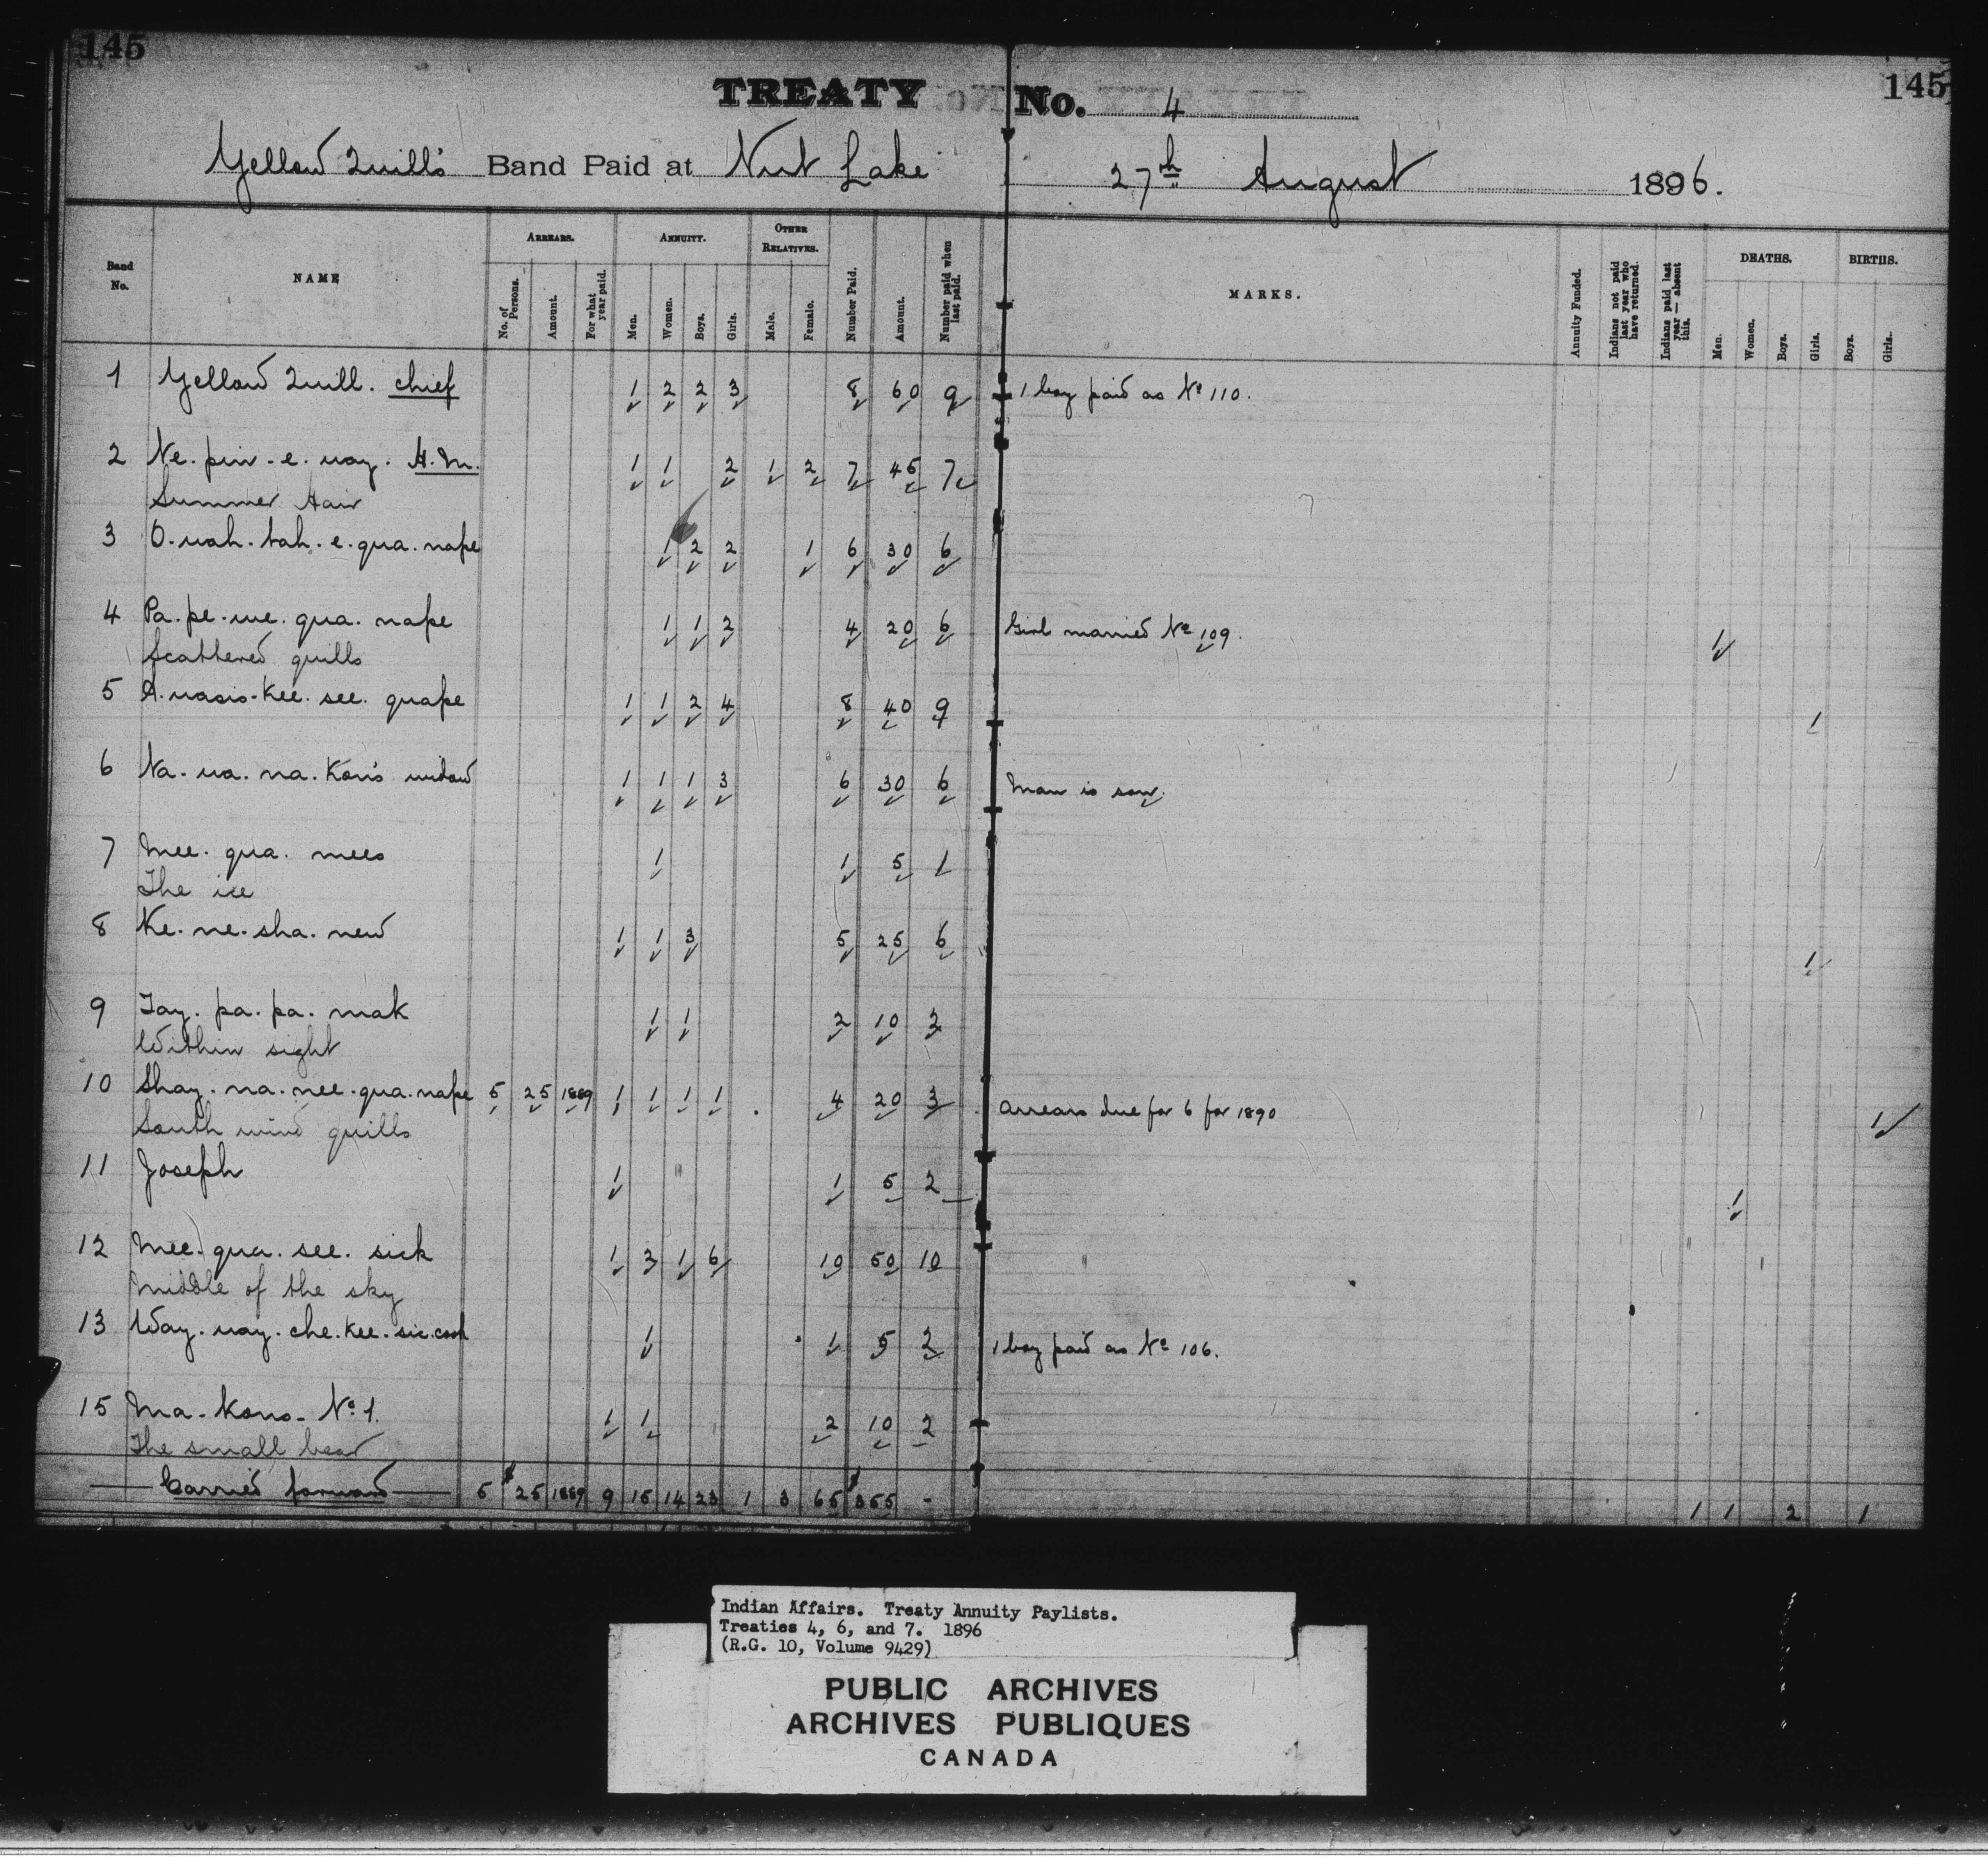 145
145
TREATY No. 4
Yellow Quill's Band Paid at Nut Lake 27th August 1896.
Band No.
NAME
ARREARS.
No. of Persons.
Amount.
For what year paid.
ANNUITY.
Men.
Women.
Boys.
Girls.
OTHER RELATIVES.
Male.
Female.
Number Paid.
Amount.
Number paid when last paid.
MARKS.
Annuity Funded.
Indians not paid last year who have returned.
Indians paid last year — absent this.
DEATHS.
Men.
Women.
Boys.
Girls.
BIRTHS.
Boys.
Girls.
1 Yellow Quill. chief 1 2 2 3 8 60 9 1 boy paid as No 110.
2 Ne. pin - e. way. H.M. 1 1 2 1 2 7 45 7
Summer Hair
3 O. wah. tah. e. qua. nape 1 2 2 1 6 30 6
4 Pa. pe. we. qua. nape 1 1 2 4 20 6 Girl married No 109. 1
Scattered quills
5 A. wasis - Kee. see. quape 1 1 2 4 8 40 9 1
6 Na. wa. na. Kon's widow 1 1 1 3 6 30 6 Man is son.
7 Mee. qua. mees 1 1 5 1
The ice
8 Ke. ne. sha. new 1 1 3 5 25 6 1
9 Tay. pa. pa. mak 1 1 2 10 2
Within sight
10 Shay. na. nee. qua. nape 5 25 1889 1 1 1 1 4 20 3 Arrears due for 6 for 1890 1
South wind quills
11 Joseph 1 1 5 2 1
12 Mee. qua. see. sick 1 3 1 6 10 50 10
Middle of the sky
13 Way. way. che. Kee. sic. 1 1 5 2 1 boy paid as No 106.
15 Ma - Kons - No 1. 1 1 2 10 2
The small bear
Carried forward 5 $25 1889 9 15 14 23 1 3 65 $355 - 1 1 2 1
Indian Affairs. Treaty Annuity Paylists.
Treaties 4, 6, and 7. 1896
(R.G. 10, Volume 9429)
PUBLIC ARCHIVES
ARCHIVES PUBLIQUES
CANADA